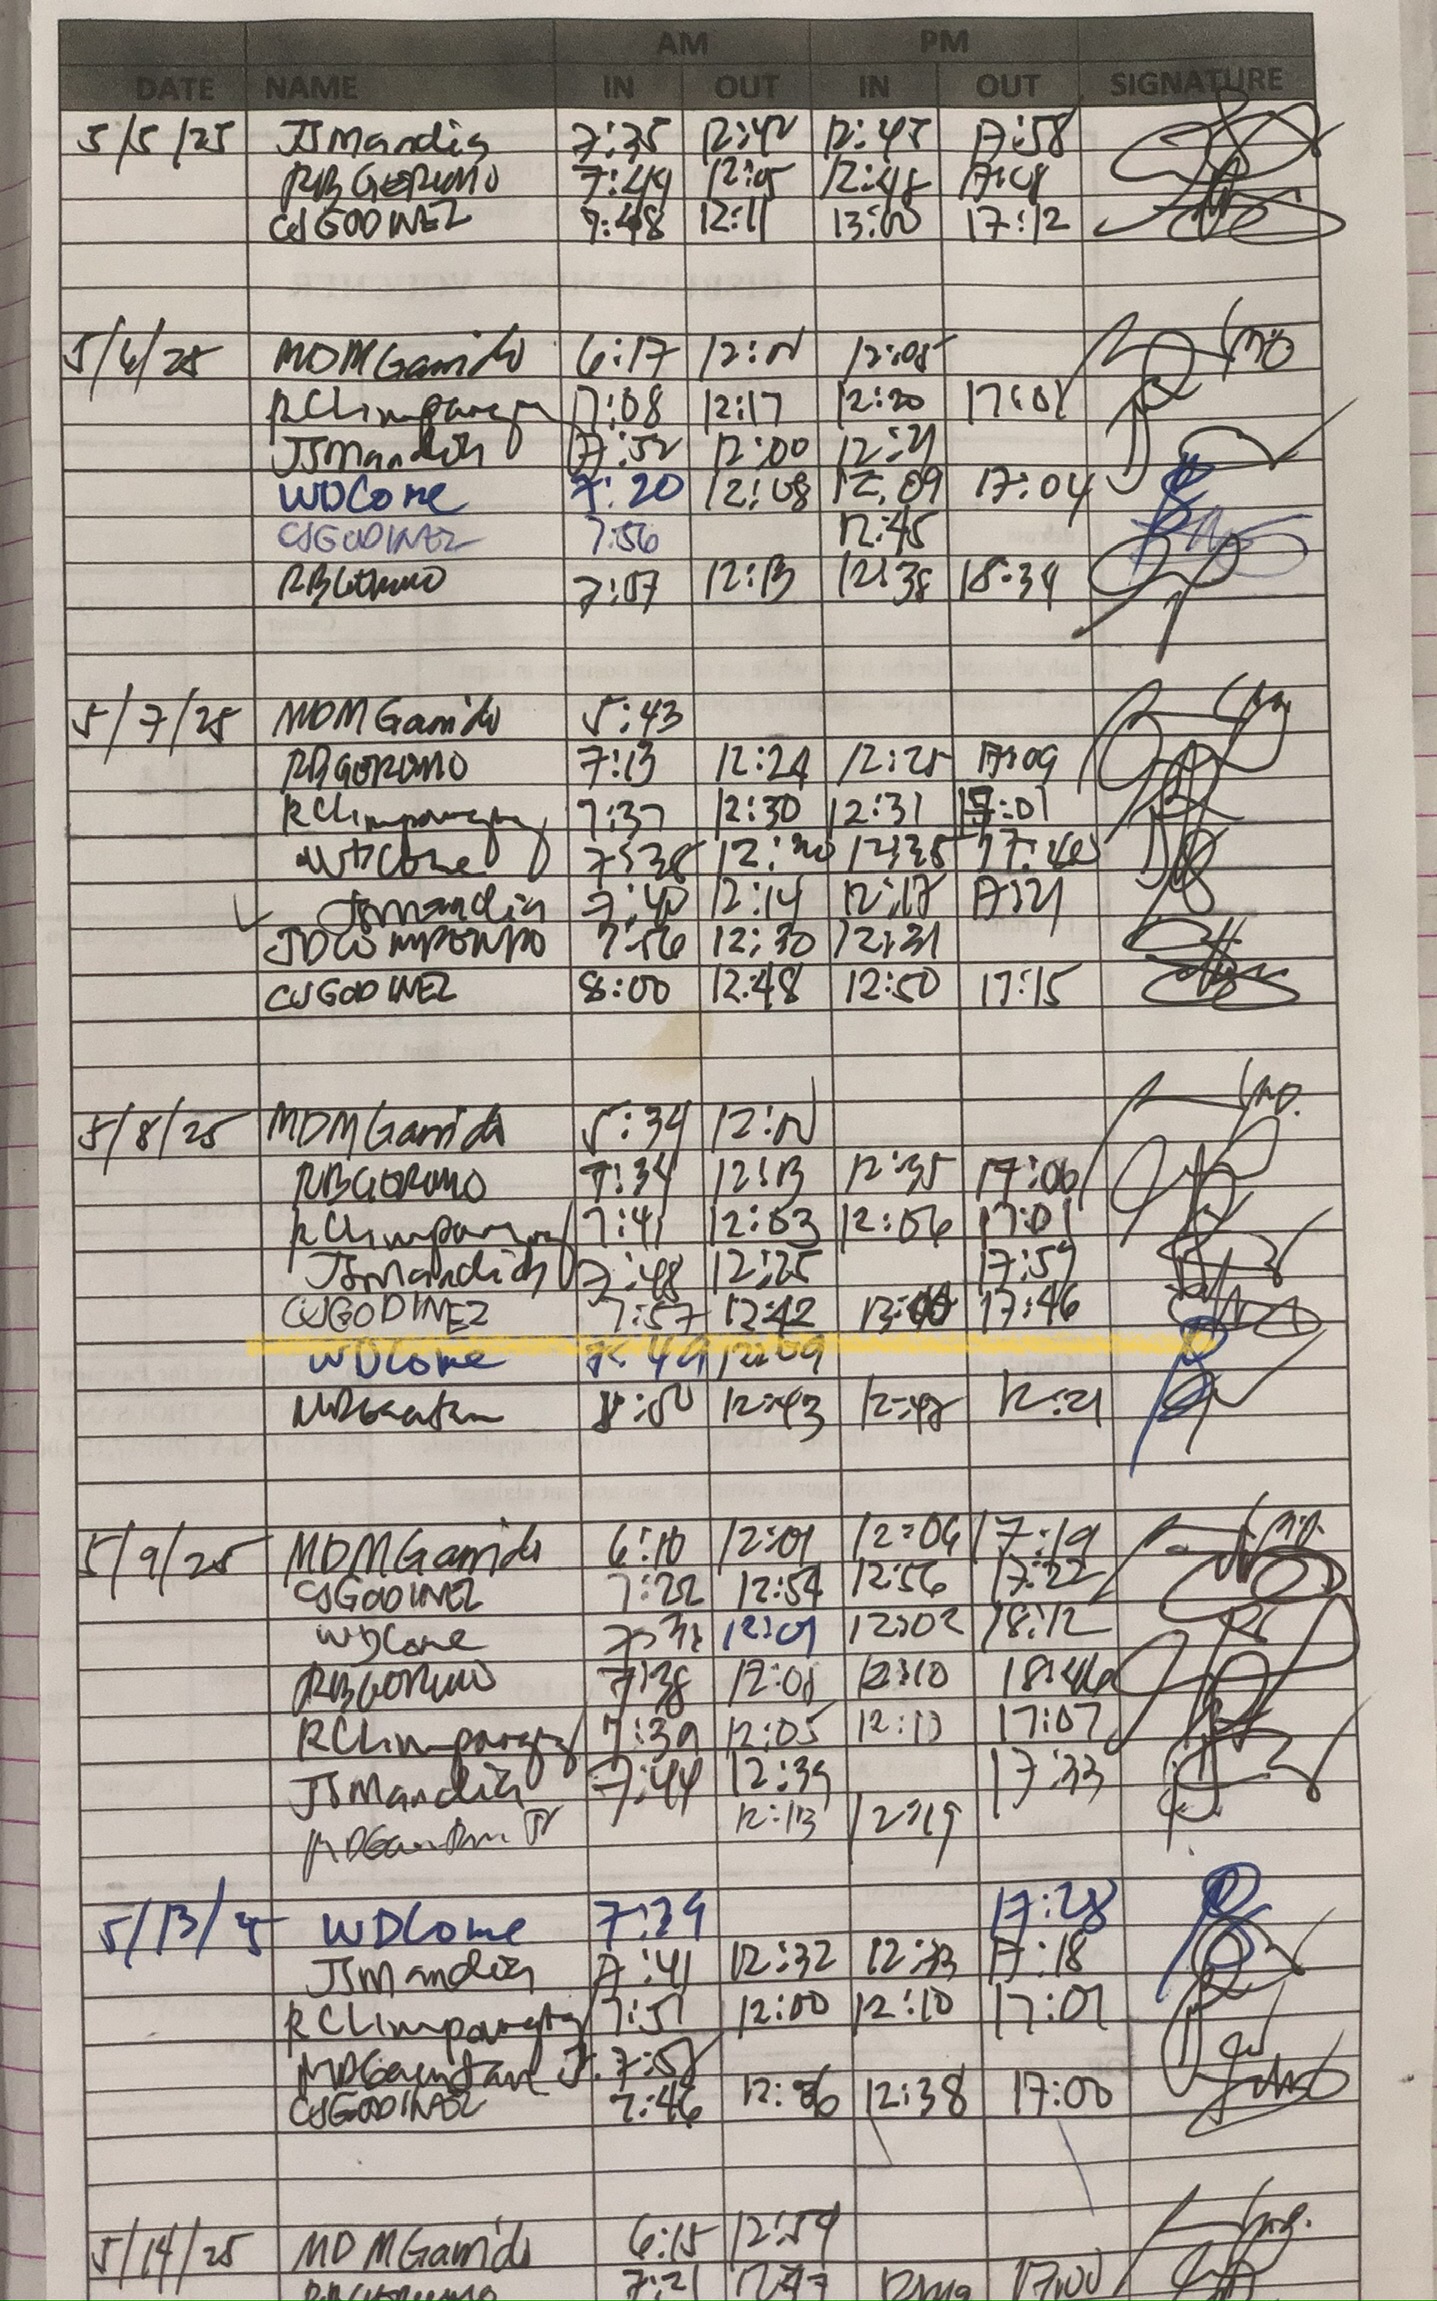 AM PM
DATE NAME IN OUT IN OUT SIGNATURE
5/5/25 JSMandia 7:35 12:42 12:45 17:58
RBGERONO 7:49 12:05 12:48 17:08
CSGODINEZ 7:48 12:11 13:00 17:12
DISBURSEMENT VOUCHER
5/6/25 MDMGarrido 6:17 12:01 12:05
RCLimpangog 7:08 12:17 12:20 17:01
JSMandia 7:52 12:00 12:21
WDCome 7:20 12:08 12:09 17:04
CSGODINEZ 7:56 12:45
RBGerono 7:07 12:13 12:38 18:34
5/7/25 MDMGarrido 5:43
RBGERONO 7:13 12:24 12:25 17:09
RCLimpangog 7:37 12:30 12:31 17:01
WDCome 7:38 12:30 12:35 17:40
JSMandia 7:40 12:14 12:17 17:21
7:56 12:30 12:31
CSGODINEZ 8:00 12:48 12:50 17:15
5/8/25 MDMGarrido 5:34 12:01
RBGERONO 7:34 12:13 12:35 17:06
RCLimpangog 7:41 12:03 12:06 17:01
JSMandia 7:48 12:25 17:59
CSGODINEZ 7:57 12:42 13:00 17:46
WDCome 7:49 12:09
12:43 12:48 12:21
5/9/25 MDMGarrido 6:10 12:01 12:06 17:19
CSGODINEZ 7:22 12:54 12:56 17:22
WDCome 12:01 12:02 18:12
RBGERONO 7:38 12:08 12:10 18:46
RCLimpangog 7:39 12:05 12:10 17:07
JSMandia 7:44 12:39 17:33
12:13 12:19
5/13/25 WDCome 7:39 17:28
JSMandia 7:41 12:32 12:33 17:18
RCLimpangog 7:51 12:00 12:10 17:01
MDGauntan Jr. 7:58
CSGODINEZ 7:46 12:36 12:38 17:00
5/14/25 MDMGarrido 6:15 12:54
7:21 12:47 17:00